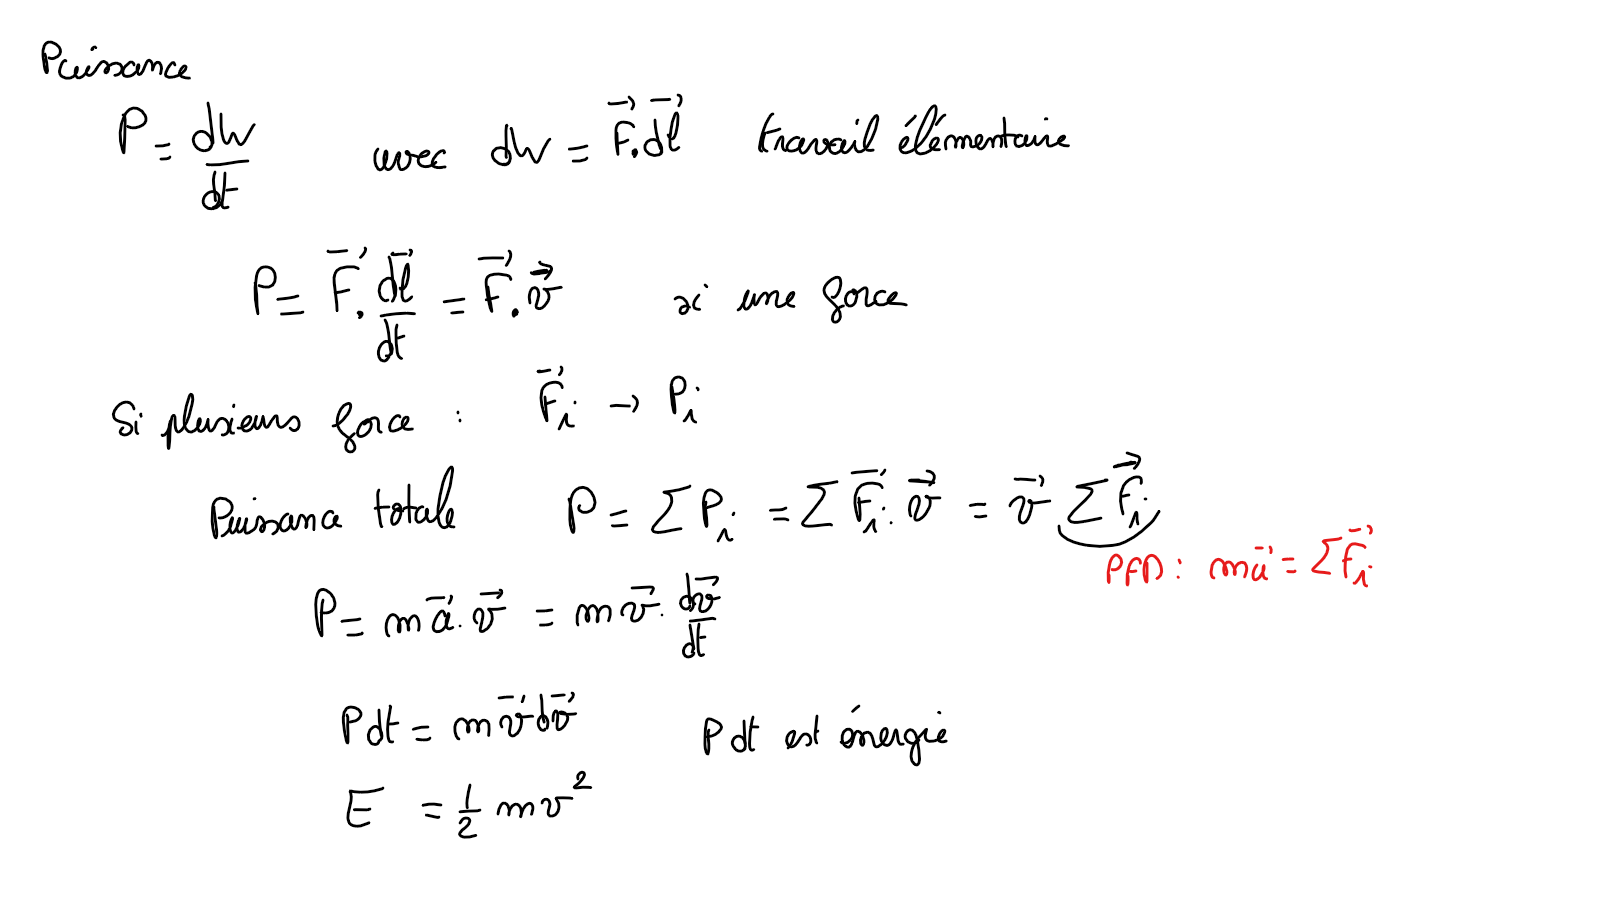 Puissance
P = dW/dt avec dW = F⃗.dl⃗ travail élémentaire
P = F⃗.dl⃗/dt = F⃗.v⃗ si une force
Si plusieurs force : F⃗i → Pi
Puissance totale P = ΣPi = ΣF⃗i.v⃗ = v⃗ ΣF⃗i
PFD : ma⃗ = ΣF⃗i
P = ma⃗.v⃗ = mv⃗.dv⃗/dt
Pdt = mv⃗dv⃗ Pdt est énergie
E = 1/2 mv²